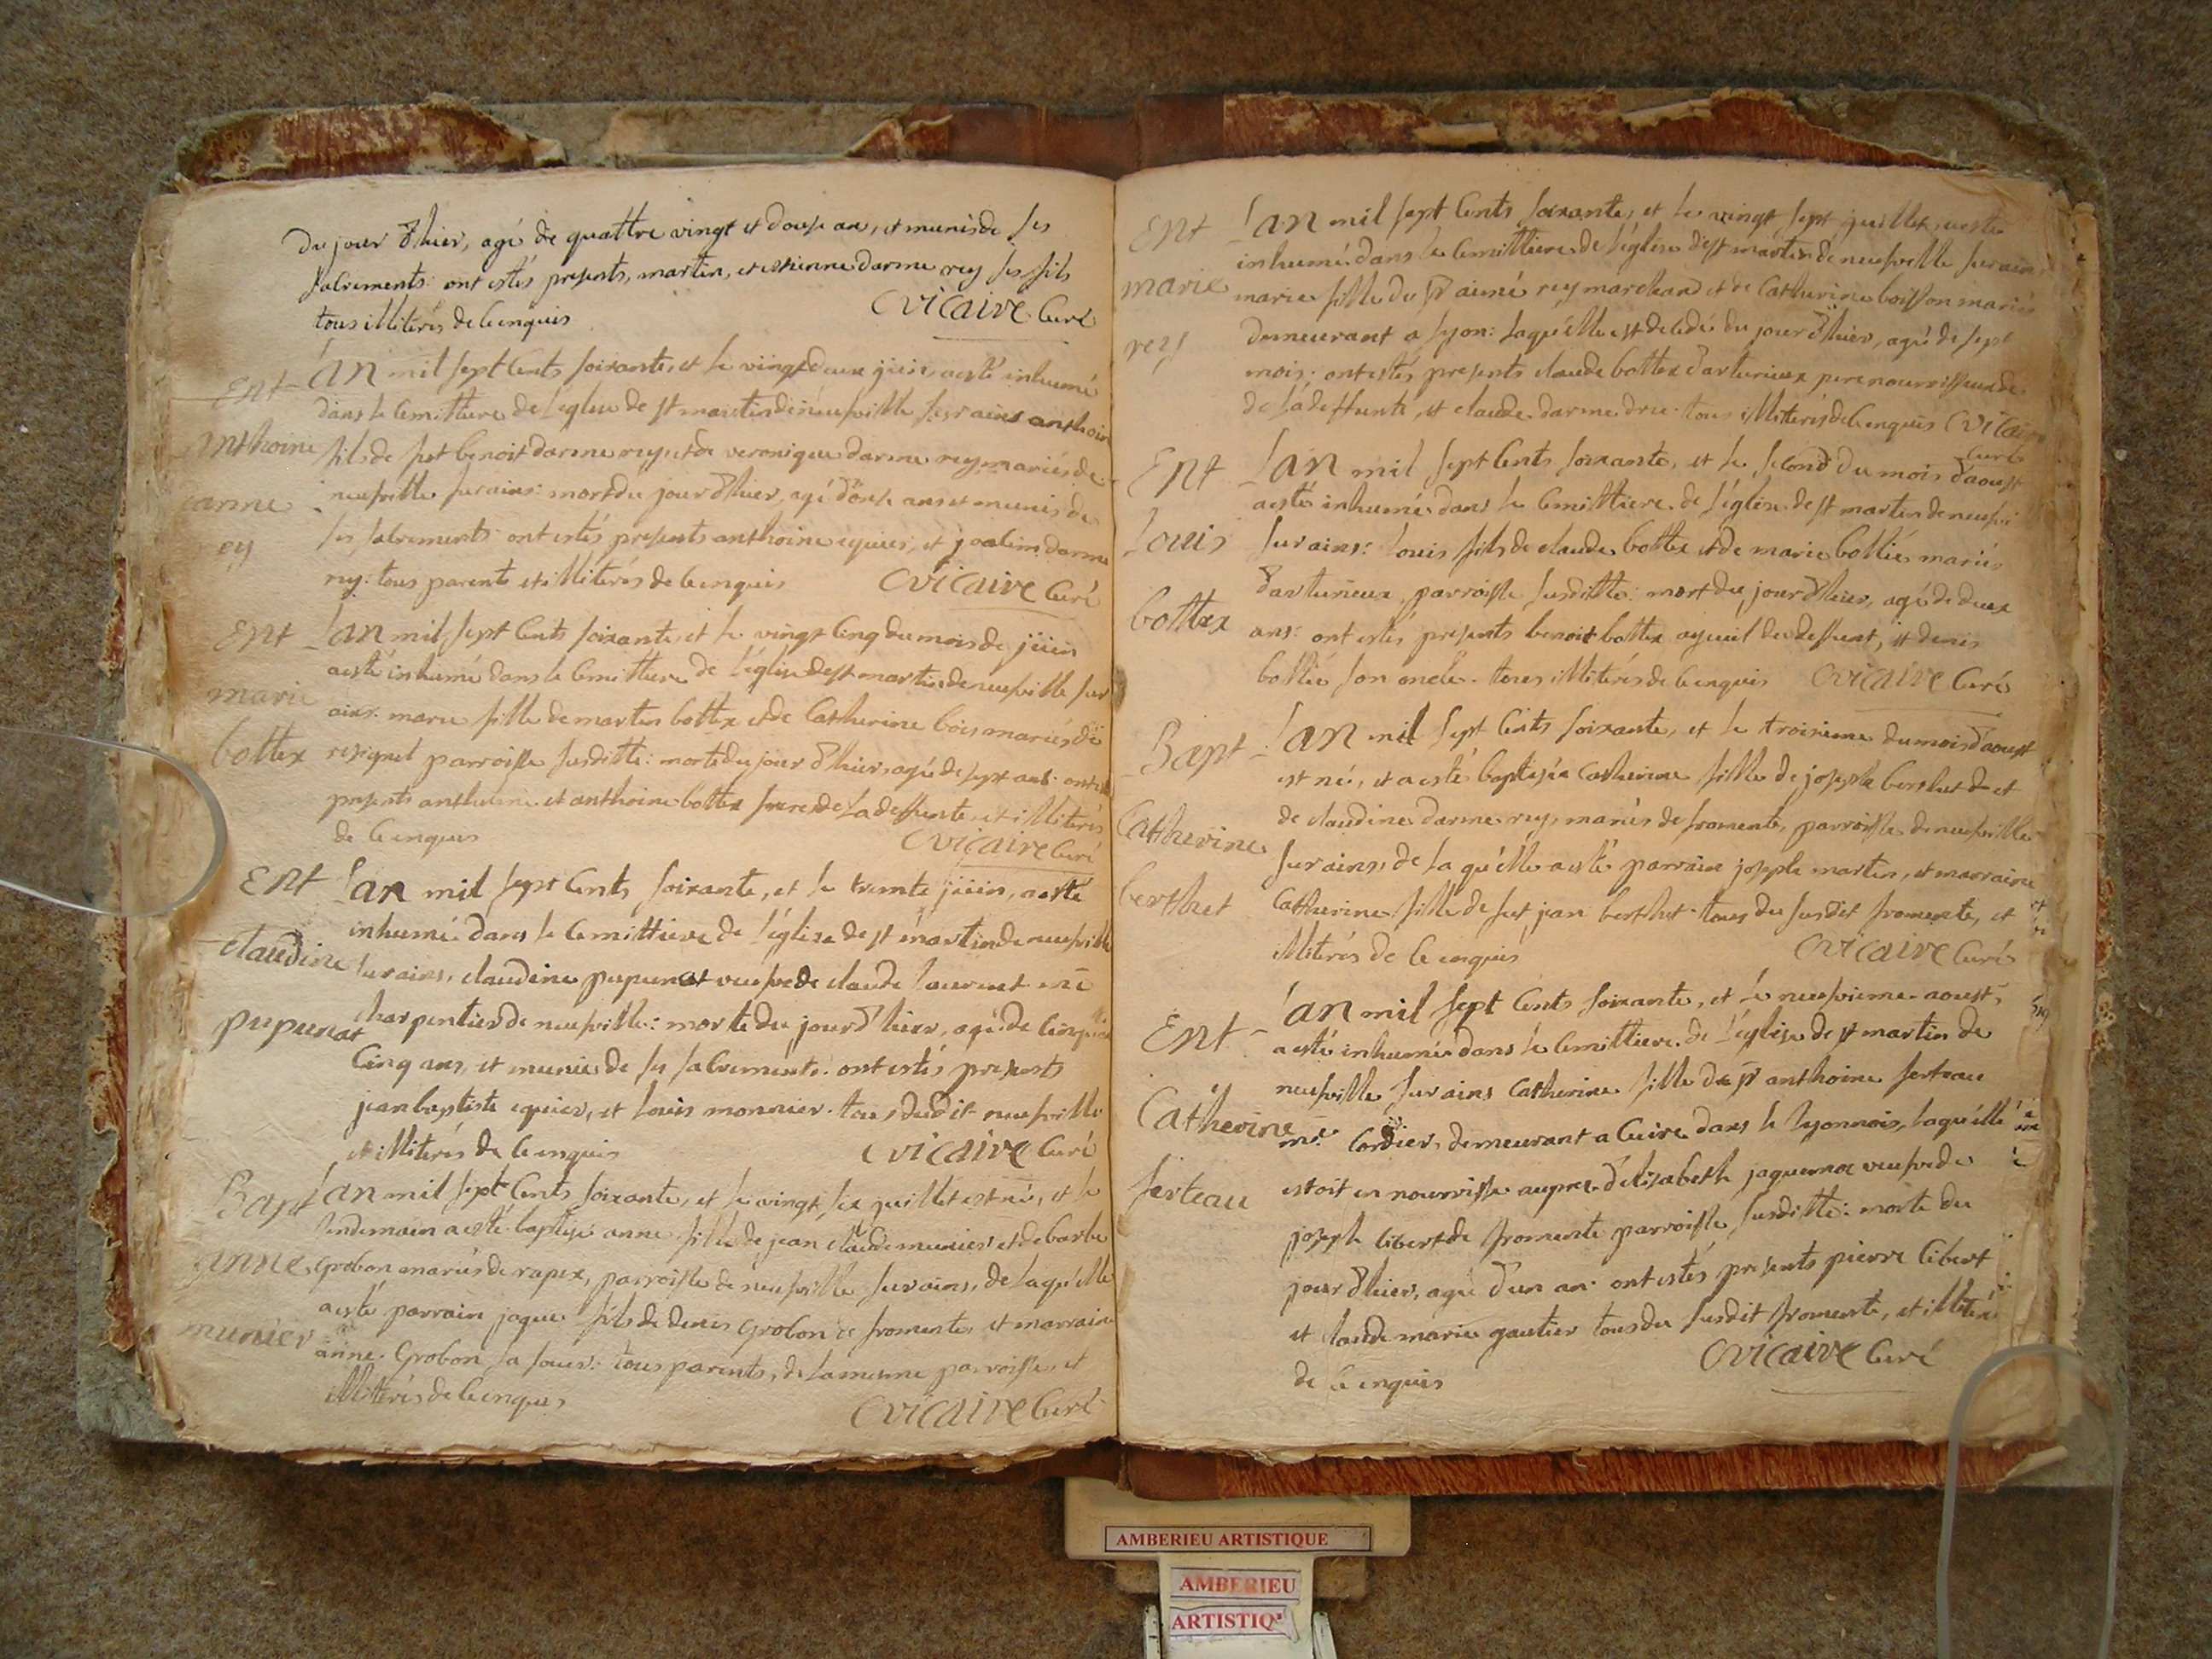 du jour d'hier, agé de quattre vingt et douse ans, et munis de ses
sacrements: ont estés presents, martin, et estienne darme rey ses fils
tous illiterés de ce enquis
Cvicaire Curé
Ent
anthoine
darme
rey
L'an mil sept cents soixante, et le vingt deux jüin, a esté inhumé
dans le cemittiere de l'eglise de st martin de neufville sur ains anthoine
fils de feu benoit darme rey, et de veronique darme rey, mariés de
neufville sur ains: mort du jour d'hier, agé d'onse ans et munis de
ses sacrements: ont estés presents anthoine equier, et joachim darme
rey: tous parents et illiterés de ce enquis
Cvicaire Curé
Ent
marie
bottex
L'an mil sept cents soixante, et le vingt cinq du mois de jüin
a esté inhumé dans le cemittiere de l'église de st martin de neufville sur
ains: marie fille de martin bottex et de catherine bois mariés de
resignel parroisse susditte: morte du jour d'hier, agée de sept ans: ont estés
presents anthelme et anthoine bottex freres de la deffunte, et illiterés
de ce enquis
Cvicaire Curé
Ent
claudine
pupunat
L'an mil sept cents soixante, et le trente jüin, a esté
inhumé dans le cemittiere de l'église de st martin de neufville
sur ains, claudine pupunat veufve de claude laurent me
charpentier de neufville: morte du jour d'hier, agé de cinquante
cinq ans, et munie de ses sacrements: ont estés presents
jean baptiste equier, et louis monnier: tous dudit neufville
et illiterés de ce enquis
Cvicaire Curé
Bapt
anne
munier
L'an mil sept cents soixante, et le vingt six juillet est né, et le
lendemain a esté baptisé anne fille de jean claude munier et de barbe
grobon mariés de rapex, parroisse de neufville sur ains, de laquelle
a esté parrain jaque fils de denis grobon de fromente, et marraine
anne grobon sa soeur: tous parents, de la mesme parroisse, et
illiterés de ce enquis
Cvicaire Curé
Ent
marie
rey
L'an mil sept cents soixante, et le vingt sept juillet, a esté
inhumé dans le cemittiere de l'église de st martin de neufville sur ains
marie fille du sr aimé rey marchand et de catherine boisson mariés
demeurant a lyon: laquelle est decedée du jour d'hier, agé de sept
mois: ont estés presents claude bottex d'arturieux pere nourrissier de
de la deffunte, et claude darme dru: tous illiterés de ce enquis Cvicaire
Curé
Ent
Louis
bottex
L'an mil sept cents soixante, et le second du mois d'aoust
a esté inhumé dans le cemittiere de l'église de st martin de neufville
sur ains: louis fils de claude bottex et de marie bollié mariés
d'arturieux, parroisse susditte: mort du jour d'hier, agé de deux
ans: ont estés presents benoit bottex ayeuil du deffunt, et denis
bollié son oncle: tous illiterés de ce enquis
Cvicaire Curé
Bapt
Catherine
berthet
L'an mil sept cents soixante, et le troisieme du mois d'aoust
est né, et a esté baptisée catherine fille de joseph berthet et
de claudine darme rey, mariés de fromente, parroisse de neufville
sur ains, de laquelle a esté parrain joseph martin, et marraine
catherine fille de feu jean berthet: tous du susdit fromente, et
illiterés de ce enquis
Cvicaire Curé
Ent
Catherine
ferteau
L'an mil sept cents soixante, et le neufvieme aoust,
a esté inhumé dans le cemittiere de l'église de st martin de
neufville sur ains catherine fille de sr anthoine ferteau
me cordier, demeurant a cuire dans le lyonnois, laquelle
estoit en nourrisse aupres d'elizabeth jaquemoz veufve de
joseph libert de fromente parroisse susditte: morte du
jour d'hier, agé d'un an: ont estés presents pierre libert
et claude marie gautier tous du susdit fromente, et illiterés
de ce enquis
Cvicaire Curé
AMBERIEU ARTISTIQUE
AMBERIEU
ARTISTIQ